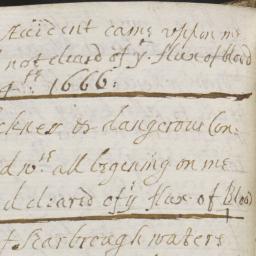 Accident came uppon me
not cleard of yͤ flux of blood
4ᵗʰ: 1666:
cknes or dangerous Con:
all begining on me
d cleared of yͤ flux of Blood
f Scarbrough waters